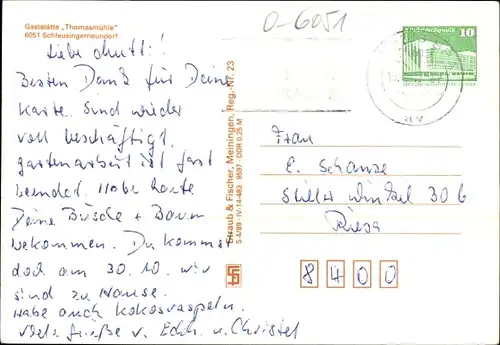 Gaststätte „Thomasmühle"
6051 Schleusingerneundorf
O-6051
10
Liebe Mutti!
Besten Dank für Deine
Karte. Sind wieder
voll beschäftigt,
gartenarbeit ist fast
beendet. Habe heute
Deine Büsche + Baum
bekommen. Du kommst
doch am 30.10. wir
sind zu Hause.
Habe auch Kokosraspeln.
Viele Grüße v. u. Christel
Straub & Fischer, Meiningen, Reg.-Nr. 23
S 4/89 · IV-14-483 · 9597 · DDR 0,25 M
Frau
E. Schanze
Stiller Winkel 30 b
Riesa
8400